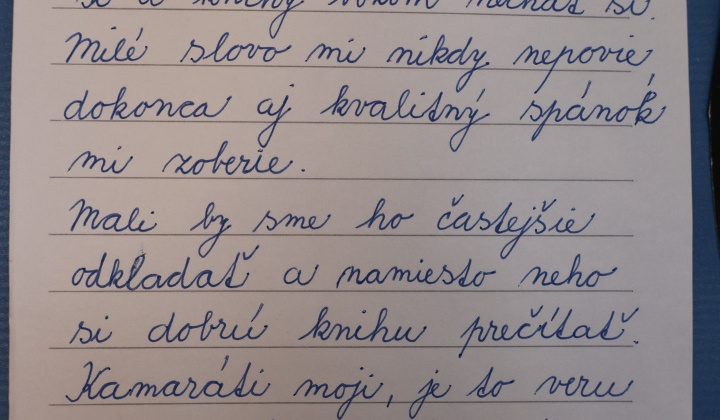 si.
Milé slovo mi nikdy nepovie,
dokonca aj kvalitný spánok
mi zoberie.
Mali by sme ho častejšie
odkladať a namiesto neho
si dobrú knihu prečítať.
Kamaráti moji, je to veru